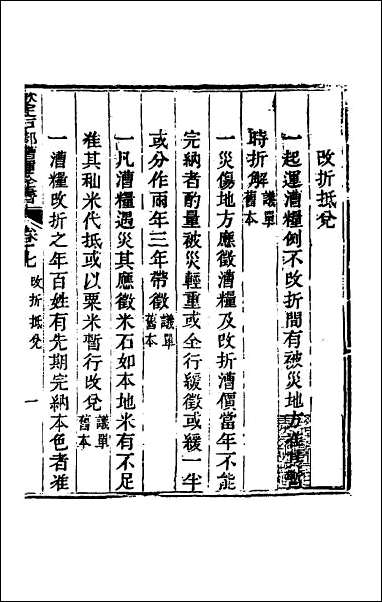 改折抵兌
一起運漕糧例不改折間有被災地方准其暫
時折解議單舊本
一災傷地方應徵漕糧及改折漕價當年不能
完納者酌量被災輕重或全行緩徵或緩一半
或分作兩年三年帶徵議單舊本
一凡漕糧遇災其應徵米石如本地米有不足
准其秈米代抵或以粟米暫行改兌議單舊本
一漕糧改折之年百姓有先期完納本色者准
欽定戶部漕運全書 卷十七 改折抵兌 一